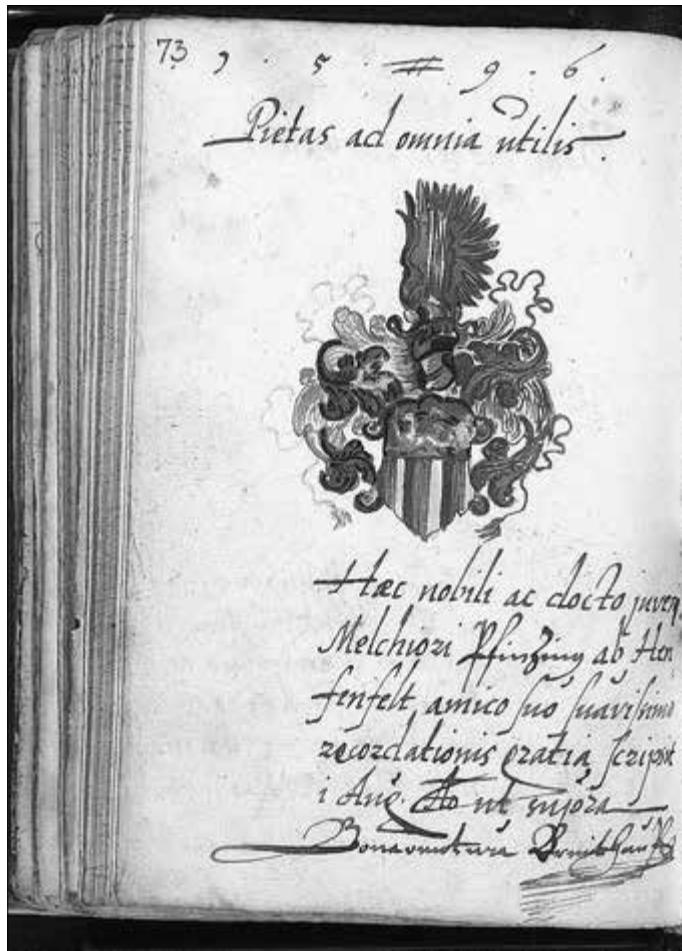 73 1 · 5 · 9 · 6 ·
Pietas ad omnia utilis.
Hæc nobili ac docto juveni
Melchiori Pfinzing ab Hen
fenfelt, amico suo suavissimo
recordationis gratia scripsit
i Aug. Ao ut supra
Bonaventura